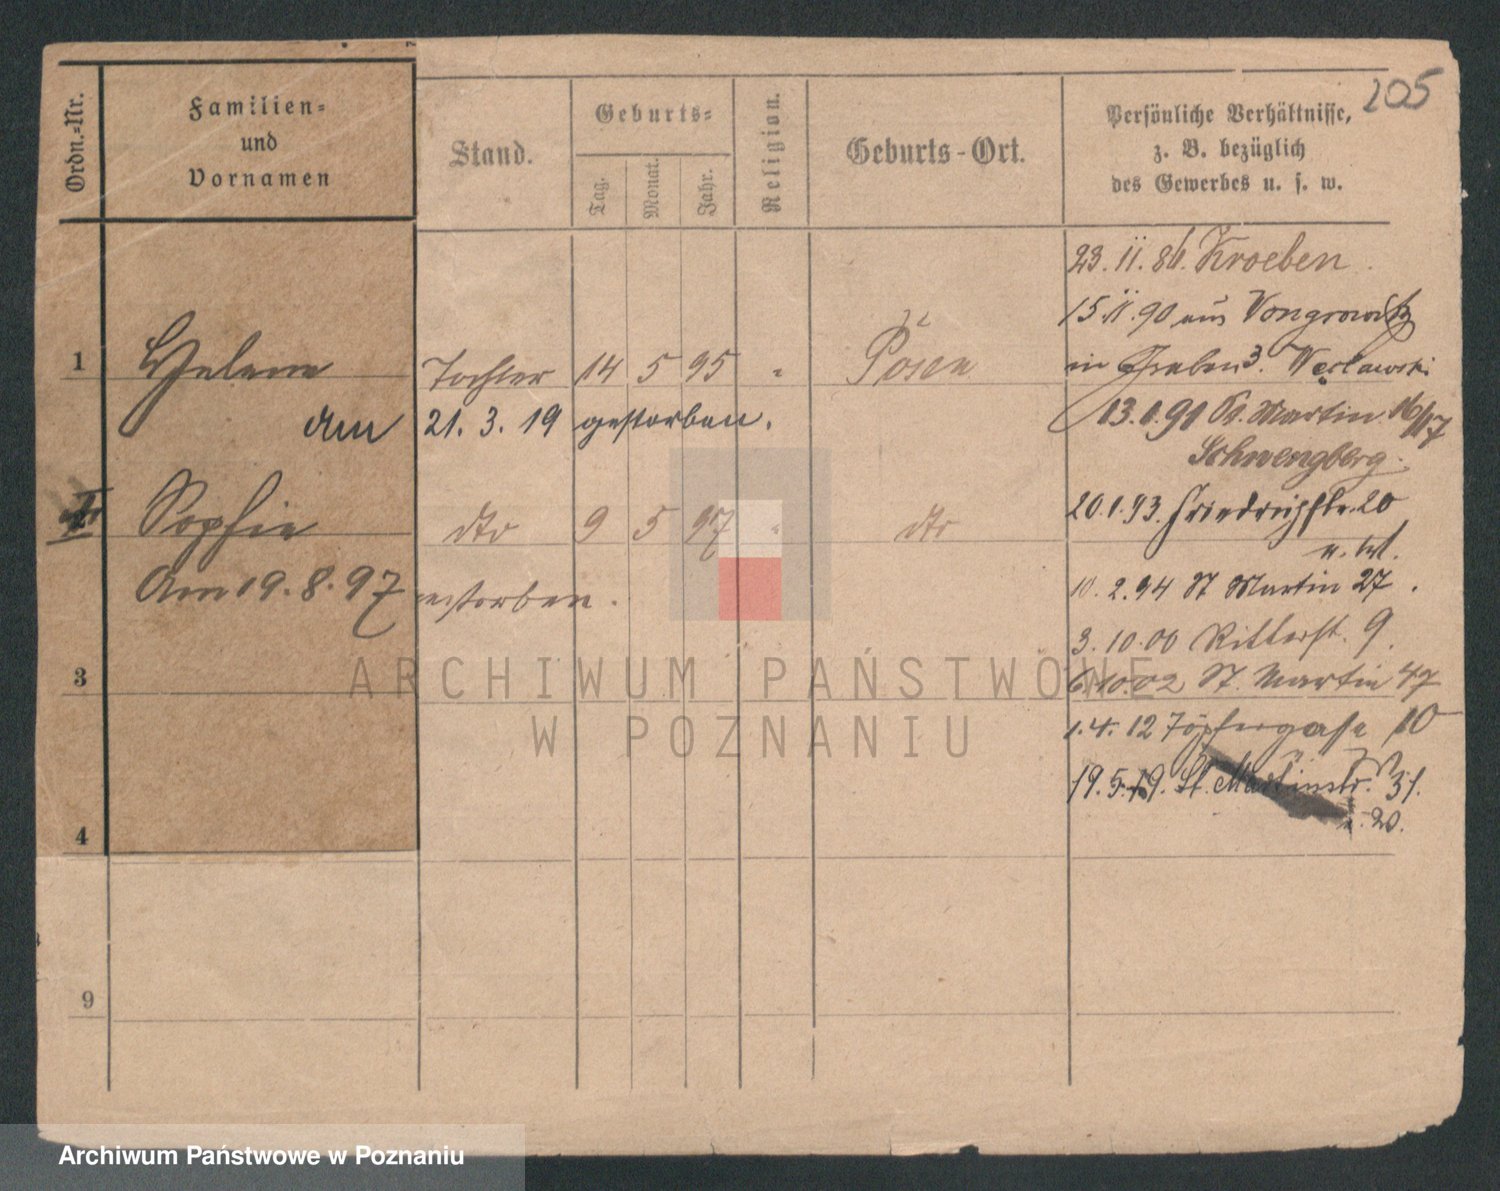 205
Ordn.-Nr.
Familien-
und
Vornamen
Stand.
Geburts-
Tag.
Monat.
Jahr.
Religion.
Geburts-Ort.
Persönliche Verhältnisse,
z. B. bezüglich
des Gewerbes u. s. w.
1 Helene Tochter 14 5 95 " Posen
am 21. 3. 19 gestorben.
2 Sophie dto 9 5 97 " dto
Am 19. 8. 97 gestorben.
3
4
9
23. 11. 86. Kroeben.
15. 11. 90 aus Wongrowitz
in Graben 3. Węclawski
13. 1. 91 St. Martin 16/17
Schwengberg.
20. 1. 93. Friedrichstr. 20
10. 2. 94 St Martin 27.
3. 10. 00 Ritterst. 9.
6. 10. 02 St. Martin 47
1. 4. 12 Töpfergasse 10
19. 5. 19. St. Martinstr. 31.
ARCHIWUM PAŃSTWOWE
W POZNANIU
Archiwum Państwowe w Poznaniu